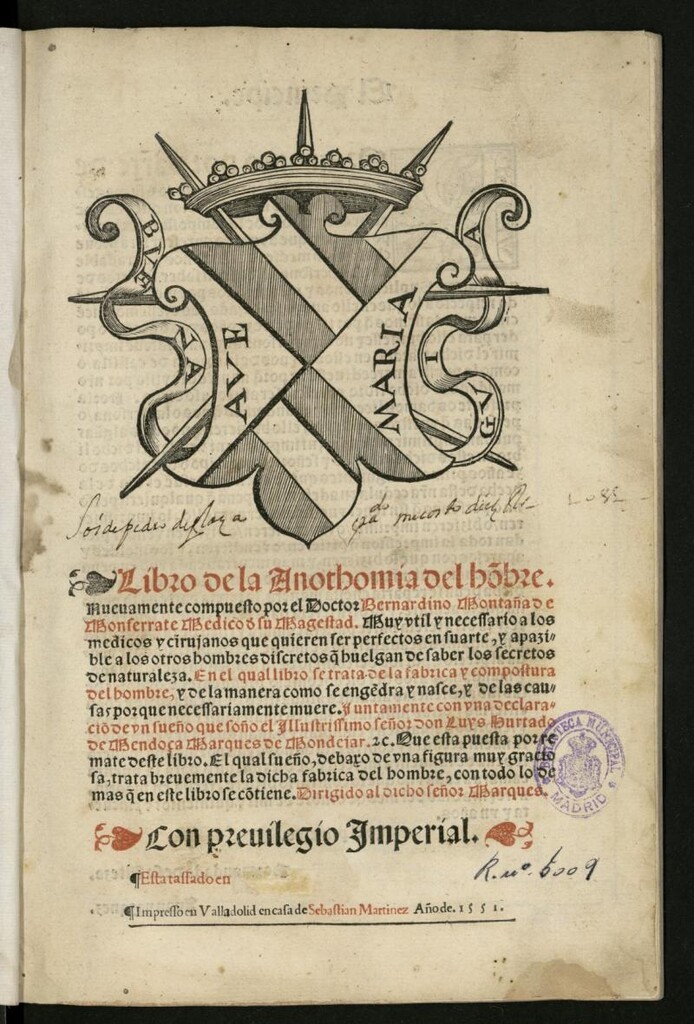 BVE
NA
GVI
A
AVE
MARIA
Libro de la Anothomia del hõbre.
Nueuamente compuesto por el Doctor Bernardino Montaña de
Monserrate Medico d̄ su Magestad. Muy vtil y necessario a los
medicos y cirujanos que quieren ser perfectos en su arte, y apazi-
ble a los otros hombres discretos q̃ huelgan de saber los secretos
de naturaleza. En el qual libro se trata de la fabrica y compostura
del hombre, y de la manera como se engẽdra y nasce, y de las cau-
sas porque necessariamente muere. Juntamente con vna declara-
ciõ de vn sueño que soño el Illustrissimo señor don Luys Hurtado
de Mendoça Marques de Mondejar. ꝛc. Que esta puesta por re
mate deste libro. El qual sueño, debaxo de vna figura muy gracio
sa, trata breuemente la dicha fabrica del hombre, con todo lo de
mas q̃ en este libro se cõtiene. Dirigido al dicho señor Marques.
BIBLIOTECA MUNICIPAL
MADRID
Con preuilegio Imperial.
R. nº. 6009
¶Esta tassado en
¶Impresso en Valladolid en casa de Sebastian Martinez Año de. 1551.